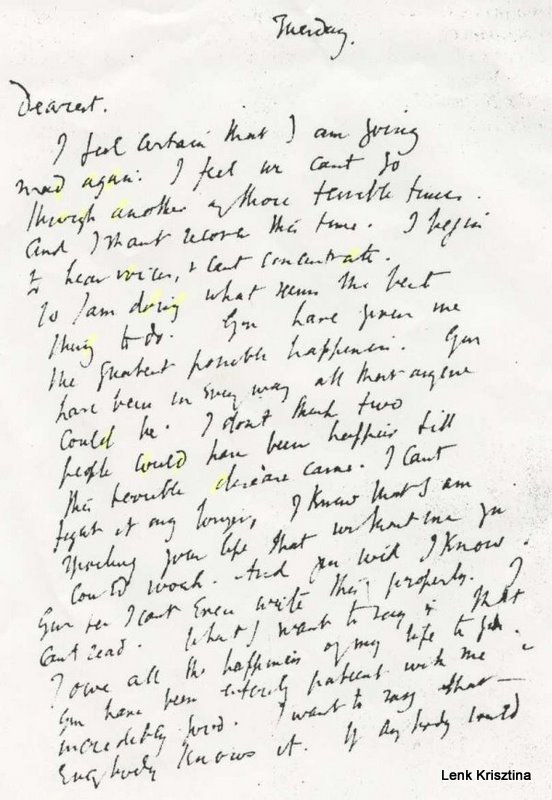 Tuesday.
Dearest.
I feel certain that I am going
mad again. I feel we cant go
through another of those terrible times.
And I shant recover this time. I begin
to hear voices, & cant concentrate.
So I am doing what seems the best
thing to do. You have given me
the greatest possible happiness. You
have been in every way all that anyone
could be. I dont think two
people could have been happier till
this terrible disease came. I cant
fight it any longer, I know that I am
spoiling your life that without me you
could work. And you will I know.
You see I cant even write this properly. I
cant read. What I want to say is that
I owe all the happiness of my life to you.
You have been entirely patient with me &
incredibly good. I want to say that—
everybody knows it. If anybody could
Lenk Krisztina